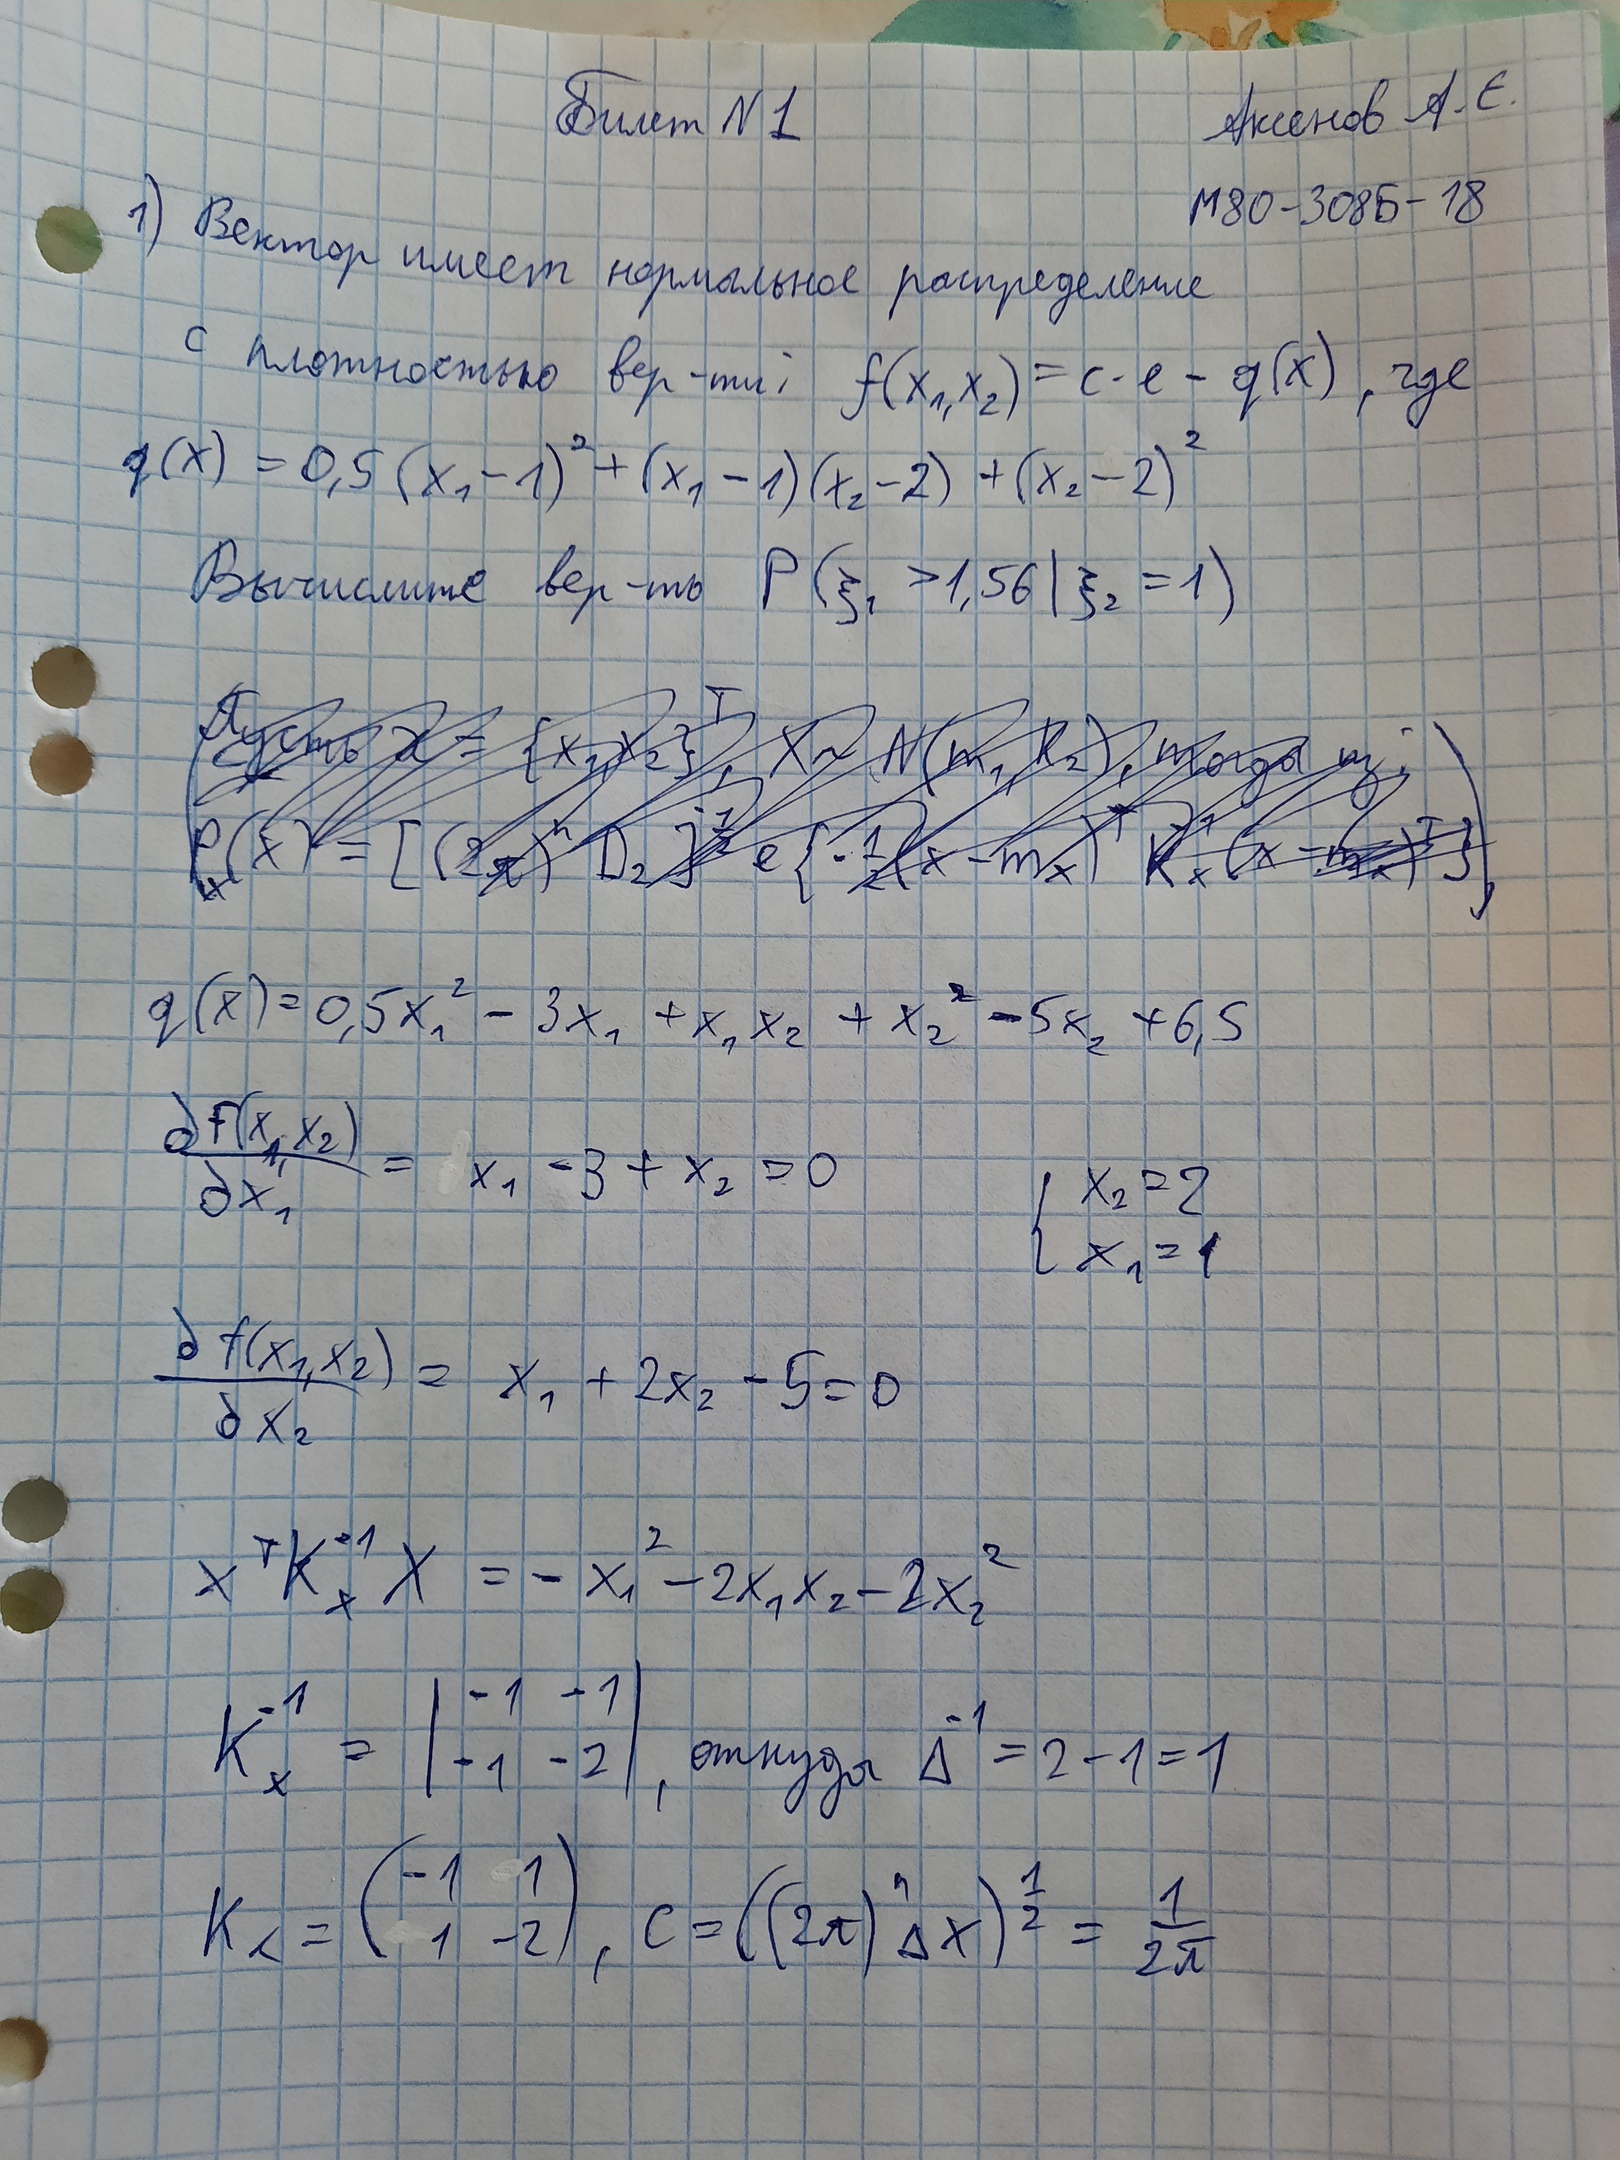 Билет N 1
Аксенов А. Е.
М80-308Б-18
1) Вектор имеет нормальное распределение
с плотностью вер-ти: f(x₁,x₂) = c·e - q(x), где
q(x) = 0,5(x₁-1)² + (x₁-1)(x₂-2) + (x₂-2)²
Вычислите вер-ть P(ξ₁ > 1,56 | ξ₂ = 1)
q(x) = 0,5x₁² - 3x₁ + x₁x₂ + x₂² - 5x₂ + 6,5
∂f(x₁,x₂)/∂x₁ = x₁ - 3 + x₂ = 0
{ x₂ = 2
x₁ = 1
∂f(x₁,x₂)/∂x₂ = x₁ + 2x₂ - 5 = 0
xᵀKₓ⁻¹X = -x₁² - 2x₁x₂ - 2x₂²
Kₓ⁻¹ = | -1 -1
-1 -2 |, откуда Δ⁻¹ = 2 - 1 = 1
Kₓ = ( -1 1
1 -2 ), C = ((2π)ⁿ Δx)^(1/2) = 1/2π